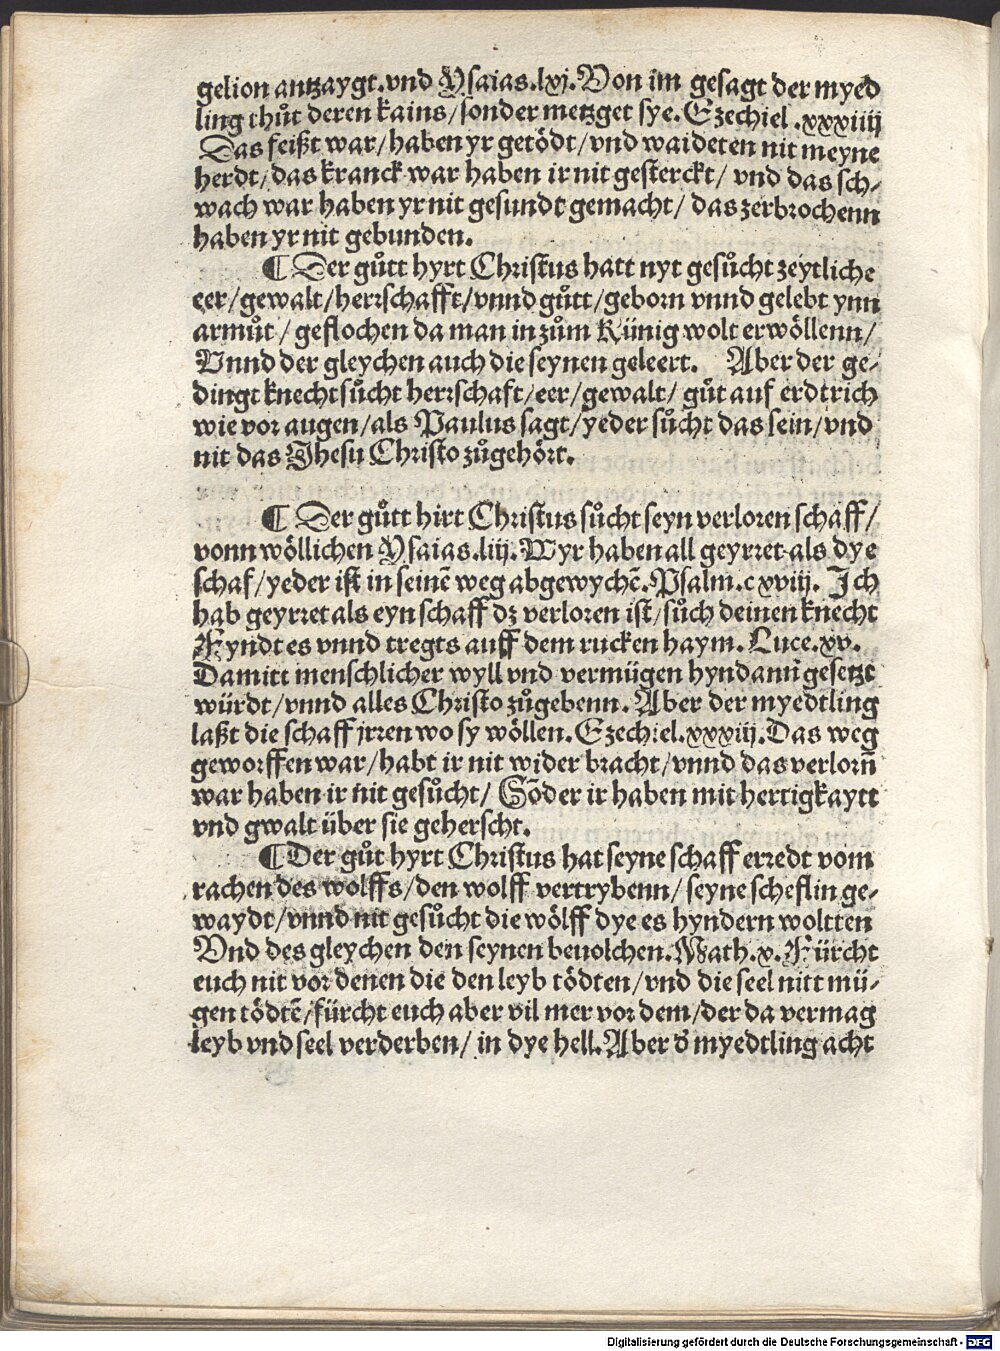 gelion antzaygt.vnd Ysaias.lxj.Von im gesagt der myed
ling thůt deren kains/sonder metzget sye.Ezechiel .xxxiiij
Das feißt war/haben yr getödt/vnd waideten nit meyne
herdt/das kranck war haben ir nit gesterckt/ vnd das sch⸗
wach war haben yr nit gesundt gemacht/ das zerbrochenn
haben yr nit gebunden.
¶ Der gůtt hyrt Christus hatt nyt gesůcht zeytliche
eer/gewalt/herrschafft/vnnd gůtt/geborn vnnd gelebt ynn
armůt/ geflochen da man in zům Künig wolt erwöllenn/
Vnnd der gleychen auch die seynen geleert. Aber der ge⸗
dingt knecht sůcht herrschaft/eer/gewalt/ gůt auf erdtrich
wie vor augen/als Paulus sagt/yeder sůcht das sein/vnd
nit das Jhesu Christo zůgehört.
¶ Der gůtt hirt Christus sůcht seyn verloren schaff/
vonn wöllichen Ysaias.liij.Wyr haben all geyrret als dye
schaf/yeder ist in seinē weg abgewychē.Psalm.cxviij. Jch
hab geyrret als eyn schaff dz verloren ist/sůch deinen knecht
Fyndt es vnnd tregts auff dem rucken haym. Luce.xv.
Damitt menschlicher wyll vnd vermügen hyndann̄ gesetzt
würdt/vnnd alles Christo zůgebenn.Aber der myedtling
laßt die schaff jrren wo sy wöllen.Ezechiel.xxxiiij.Das weg
geworffen war/habt ir nit wider bracht/vnnd das verlorn̄
war haben ir nit gesůcht/ Sōder ir haben mit hertigkaytt
vnd gwalt über sie geherscht.
¶ Der gůt hyrt Christus hat seyne schaff erredt vom
rachen des wolffs/den wolff vertrybenn/seyne scheflin ge⸗
waydt/vnnd nit gesůcht die wölff dye es hyndern woltten
Vnd des gleychen den seynen beuolchen.Math.x.Fürcht
euch nit vor denen die den leyb tödten/vnd die seel nitt mü⸗
gen tödtē/fürcht euch aber vil mer vor dem/der da vermag
leyb vnd seel verderben/ in dye hell.Aber d̕ myedtling acht
Digitalisierung gefördert durch die Deutsche Forschungsgemeinschaft - DFG